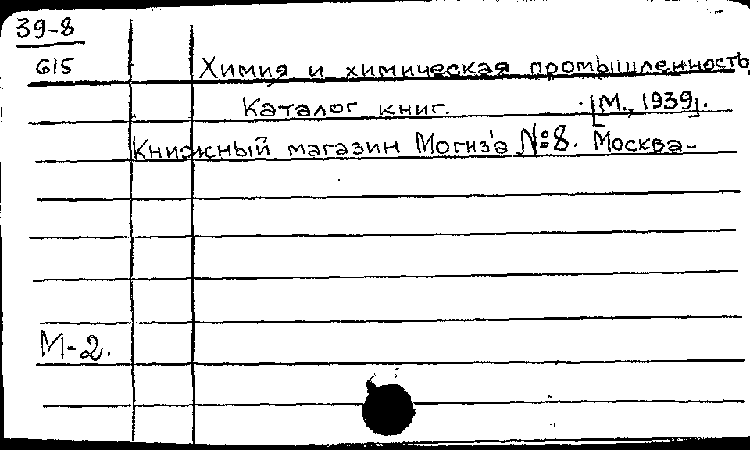 39-8
615
Химия и химическая промышленность
Каталог книг. [М., 1939].
Книжный магазин Могиз'а №8. Москва-
М-2.